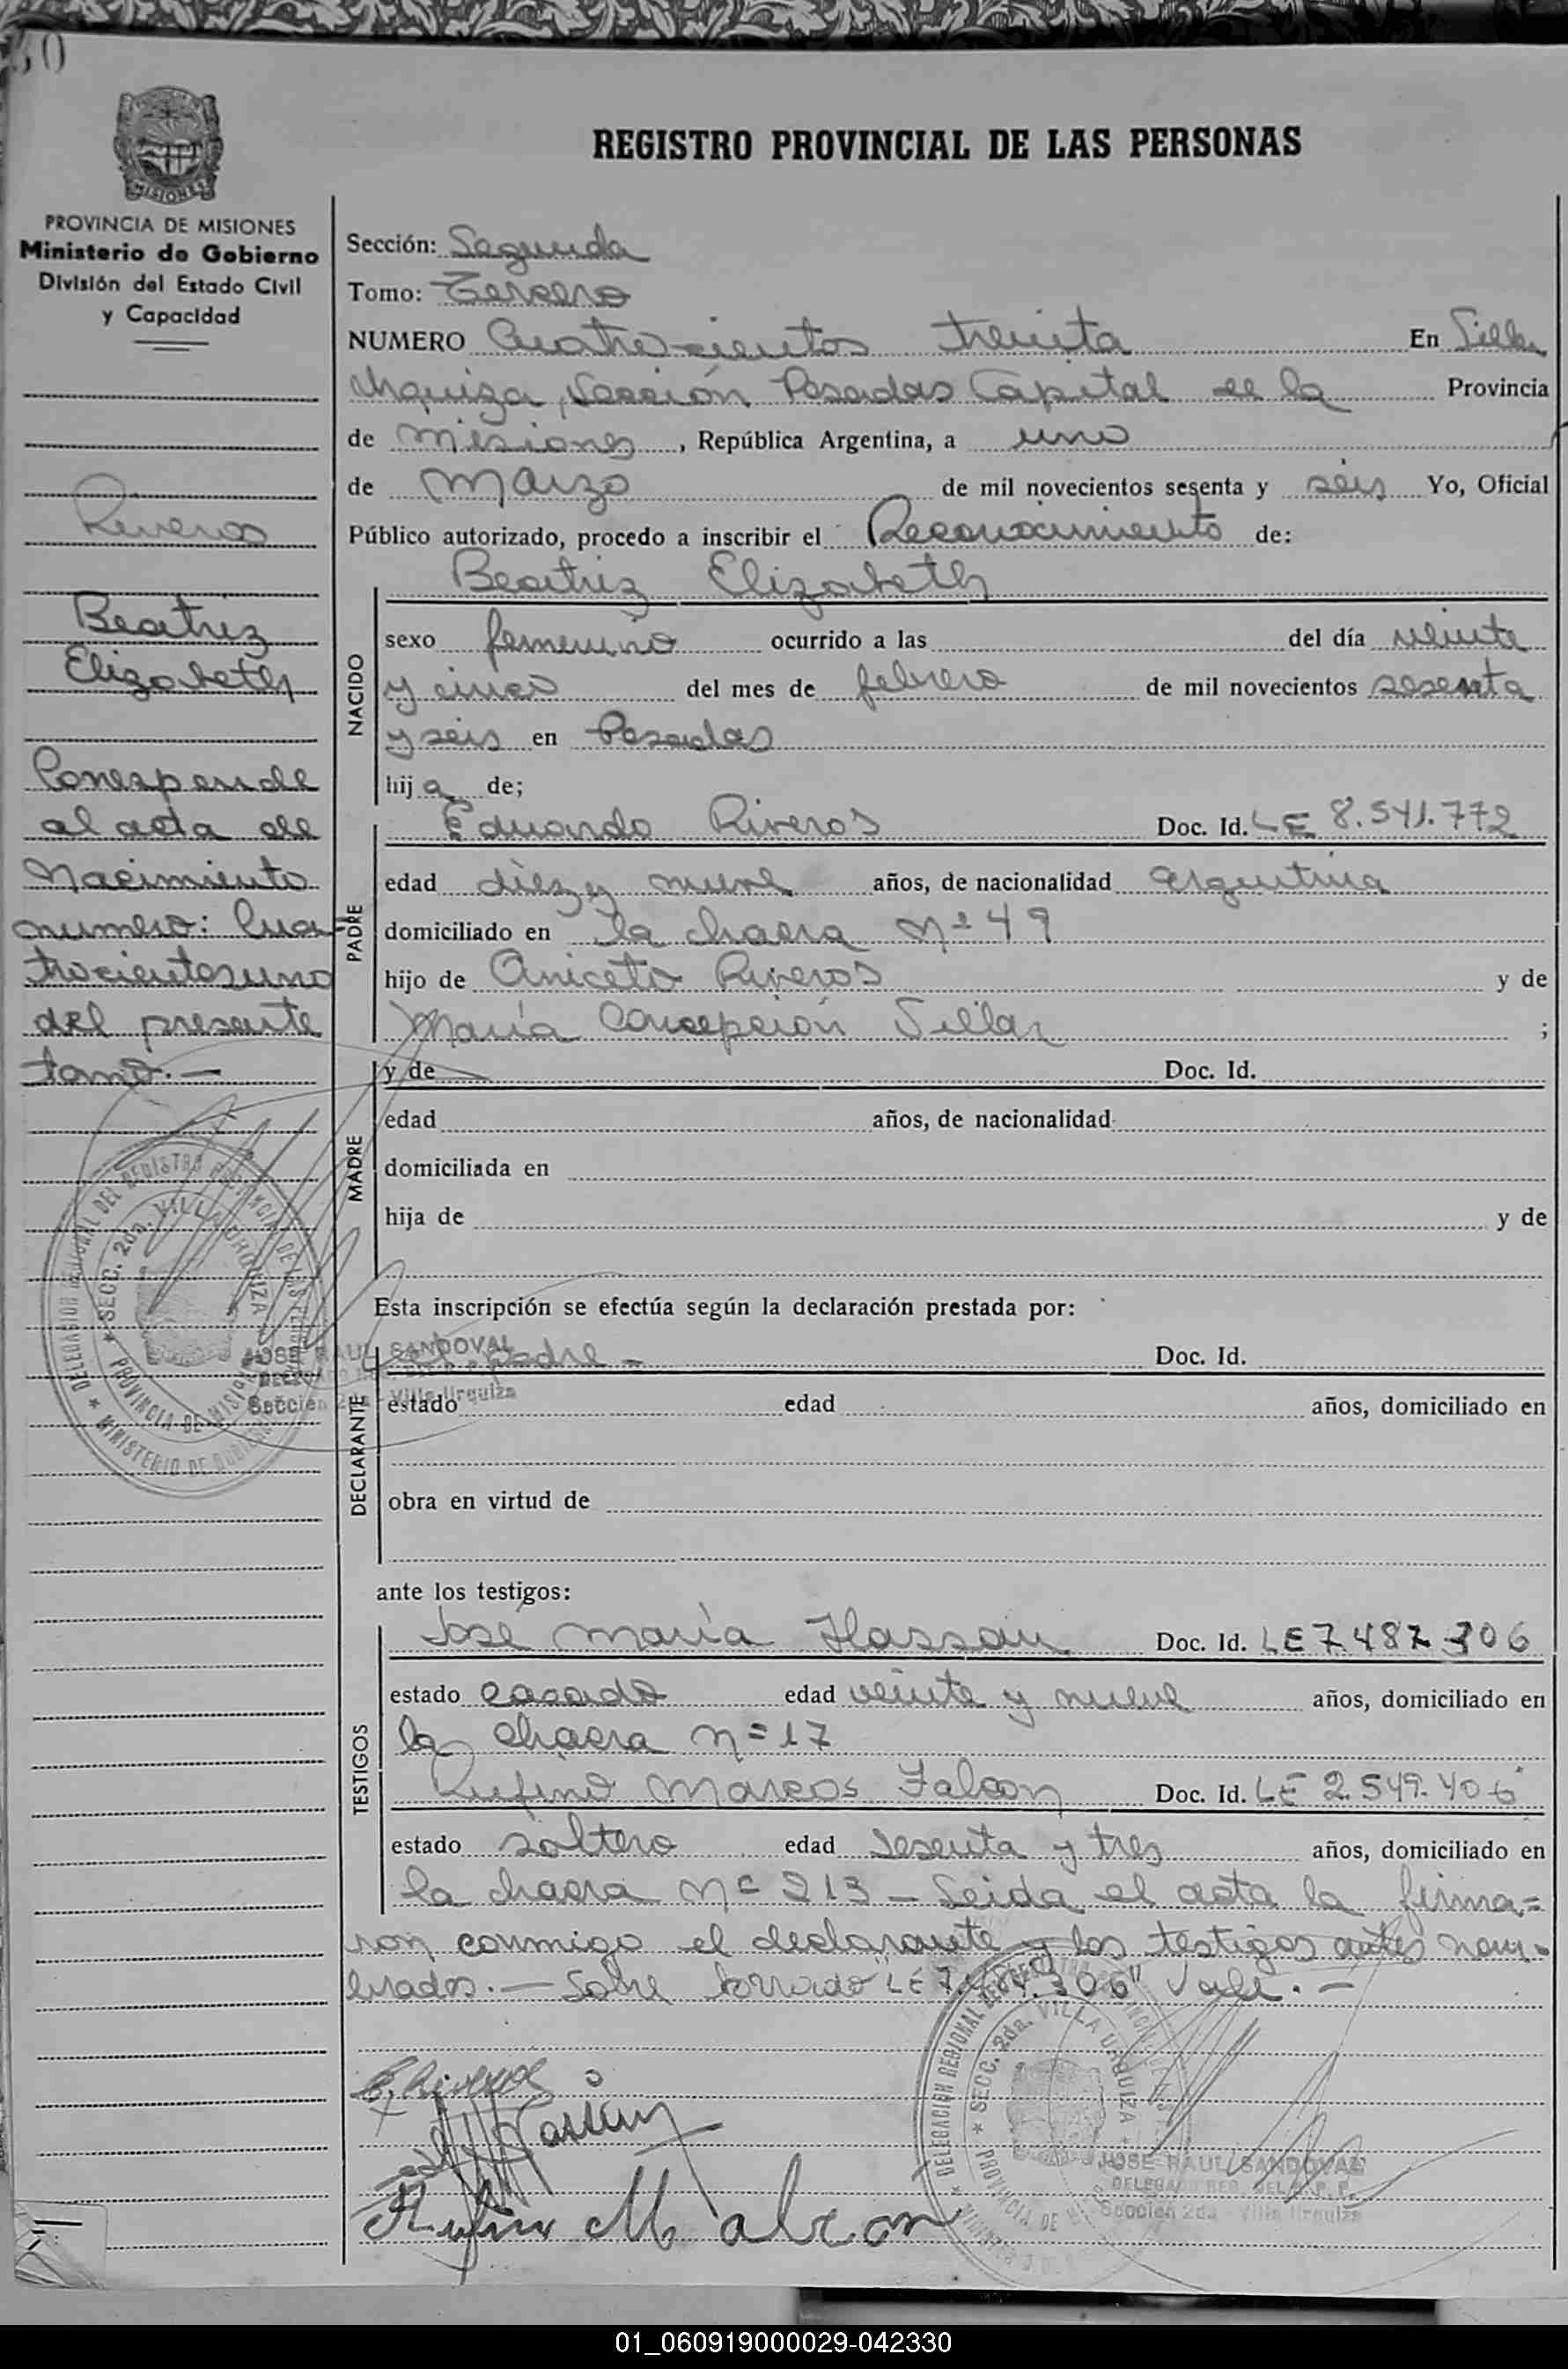 30
REGISTRO PROVINCIAL DE LAS PERSONAS
MISIONES
PROVINCIA DE MISIONES
Ministerio de Gobierno
División del Estado Civil
y Capacidad
Riveros
Beatriz
Elizabeth
Corresponde
al acta de
Nacimiento
numero: Cua=
trocientos uno
del presente
tomo.—
Sección: Segunda
Tomo: Tercero
NUMERO Cuatrocientos treinta En Villa
Urquiza, Sección Posadas Capital de la Provincia
de Misiones, República Argentina, a uno
de Marzo de mil novecientos sesenta y seis Yo, Oficial
Público autorizado, procedo a inscribir el Reconocimiento de:
Beatriz Elizabeth
NACIDO
sexo femenino ocurrido a las del día veinte
y cinco del mes de febrero de mil novecientos sesenta
y seis en Posadas
hija de;
PADRE
Eduardo Riveros Doc. Id. LE 8.541.772
edad diez y nueve años, de nacionalidad argentina
domiciliado en la chacra nº 49
hijo de Aniceto Riveros y de
María Concepción Villar ;
MADRE
y de Doc. Id.
edad años, de nacionalidad
domiciliada en
hija de y de
Esta inscripción se efectúa según la declaración prestada por:
DECLARANTE
el padre — Doc. Id.
estado edad años, domiciliado en
obra en virtud de
ante los testigos:
TESTIGOS
José María Hassan Doc. Id. LE 7.487.306
estado casado edad veinte y nueve años, domiciliado en
la chacra nº 17
Rufino Marcos Falcon Doc. Id. LE 2.549.406
estado soltero edad sesenta y tres años, domiciliado en
la chacra nº 213 — Leida el acta la firma=
ron conmigo el declarante y los testigos antes nom=
brados.— Sobre borrado "LE 7.487.306" Vale.—
DELEGACION REGIONAL DEL REGISTRO PROVINCIAL DE LAS PERSONAS
SECC. 2da. VILLA URQUIZA
PROVINCIA DE MISIONES
MINISTERIO DE GOBIERNO
JOSE RAUL SANDOVAL
DELEGADO REG. DEL R. P. P.
Sección 2da - Villa Urquiza
E. Riveros
Rufino M Falcon
DELEGACION REGIONAL
SECC. 2da. VILLA URQUIZA
PROVINCIA DE
JOSE RAUL SANDOVAL
DELEGADO REG. DEL R. P. P.
Sección 2da - Villa Urquiza
01_060919000029-042330